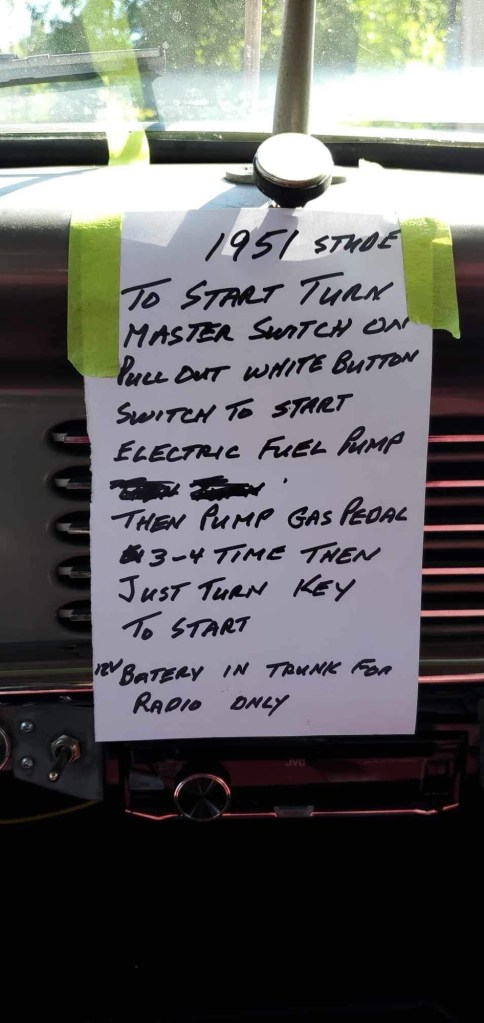 1951 STUDE
TO START TURN
MASTER SWITCH ON
PULL OUT WHITE BUTTON
SWITCH TO START
ELECTRIC FUEL PUMP
THEN PUMP GAS PEDAL
3-4 TIME THEN
JUST TURN KEY
TO START
12V BATERY IN TRUNK FOR
RADIO ONLY
JVC